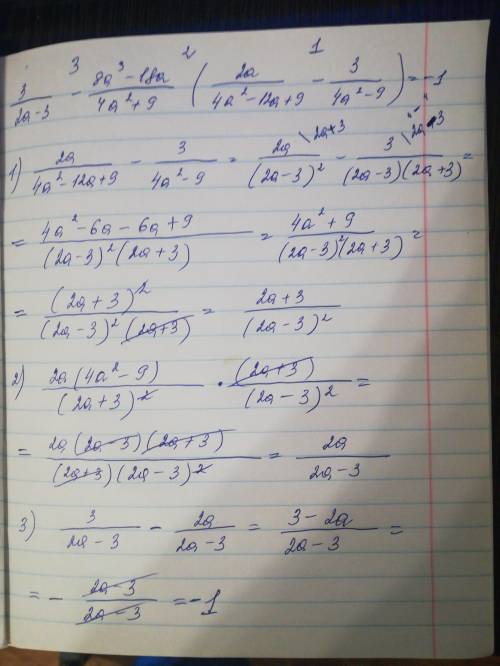 3 2 1
3/(2a-3) - (8a³-18a)/(4a²+9) (2a/(4a²-12a+9) - 3/(4a²-9)) = -1
1) 2a/(4a²-12a+9) - 3/(4a²-9) = 2a\2a+3/(2a-3)² - 3\2a-3/((2a-3)(2a+3)) =
= (4a²-6a-6a+9)/((2a-3)²(2a+3)) = (4a²+9)/((2a-3)²(2a+3)) =
= (2a+3)²/((2a-3)²(2a+3)) = (2a+3)/(2a-3)²
2) 2a(4a²-9)/(2a+3)² · (2a+3)/(2a-3)² =
= 2a(2a-3)(2a+3)/((2a+3)(2a-3)²) = 2a/(2a-3)
3) 3/(2a-3) - 2a/(2a-3) = (3-2a)/(2a-3) =
= - (2a-3)/(2a-3) = -1